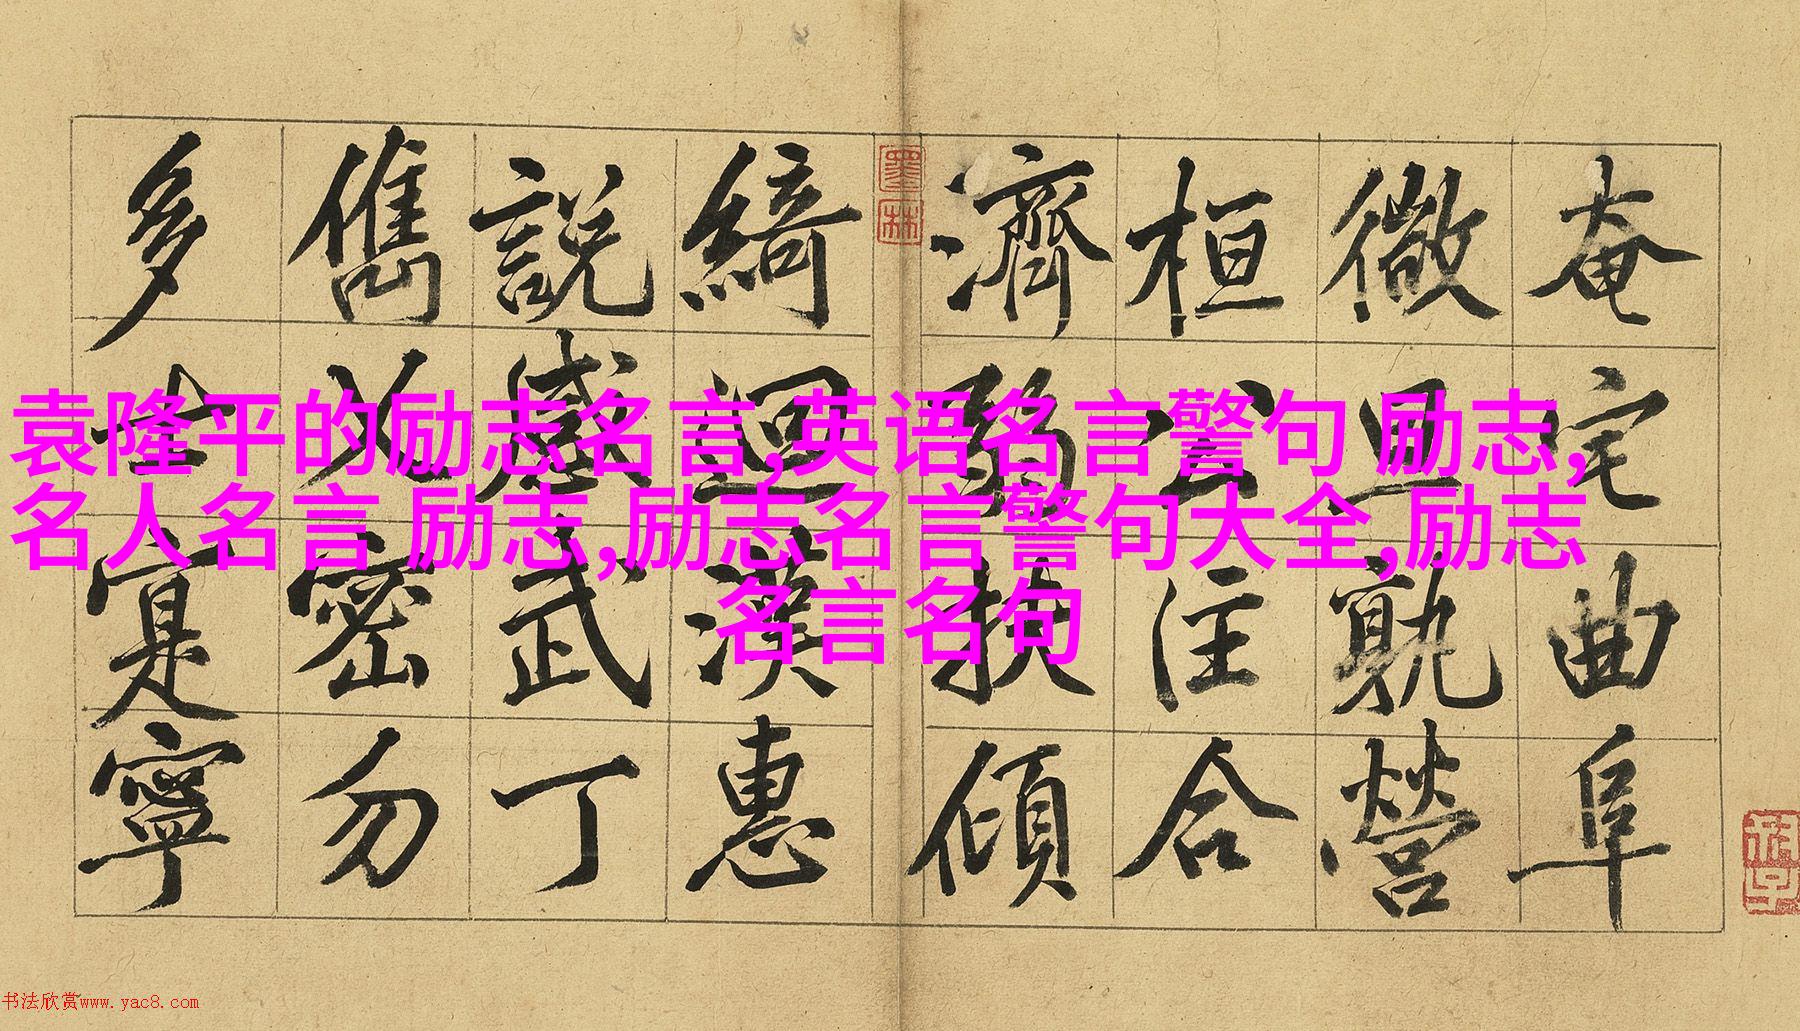 奄宅曲阜
微旦孰營
桓公匡合
濟弱扶傾
綺迴漢惠
説感武丁
儁乂密勿
多士寔寧
墨林
袁隆平的励志名言,英语名言警句 励志,
名人名言 励志,励志名言警句大全,励志
名言名句
书法欣赏www.yac8.com